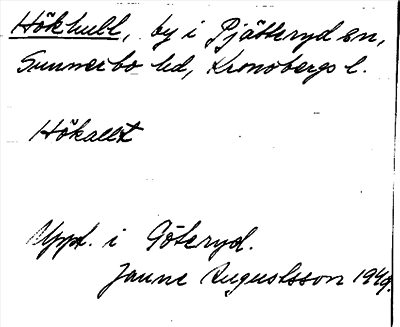 Hökhult, by i Pjätteryd sn,
Sunnerbo hd, Kronobergs l.
Hökallt
Uppt. i Göteryd.
Janne Augustsson 1949.